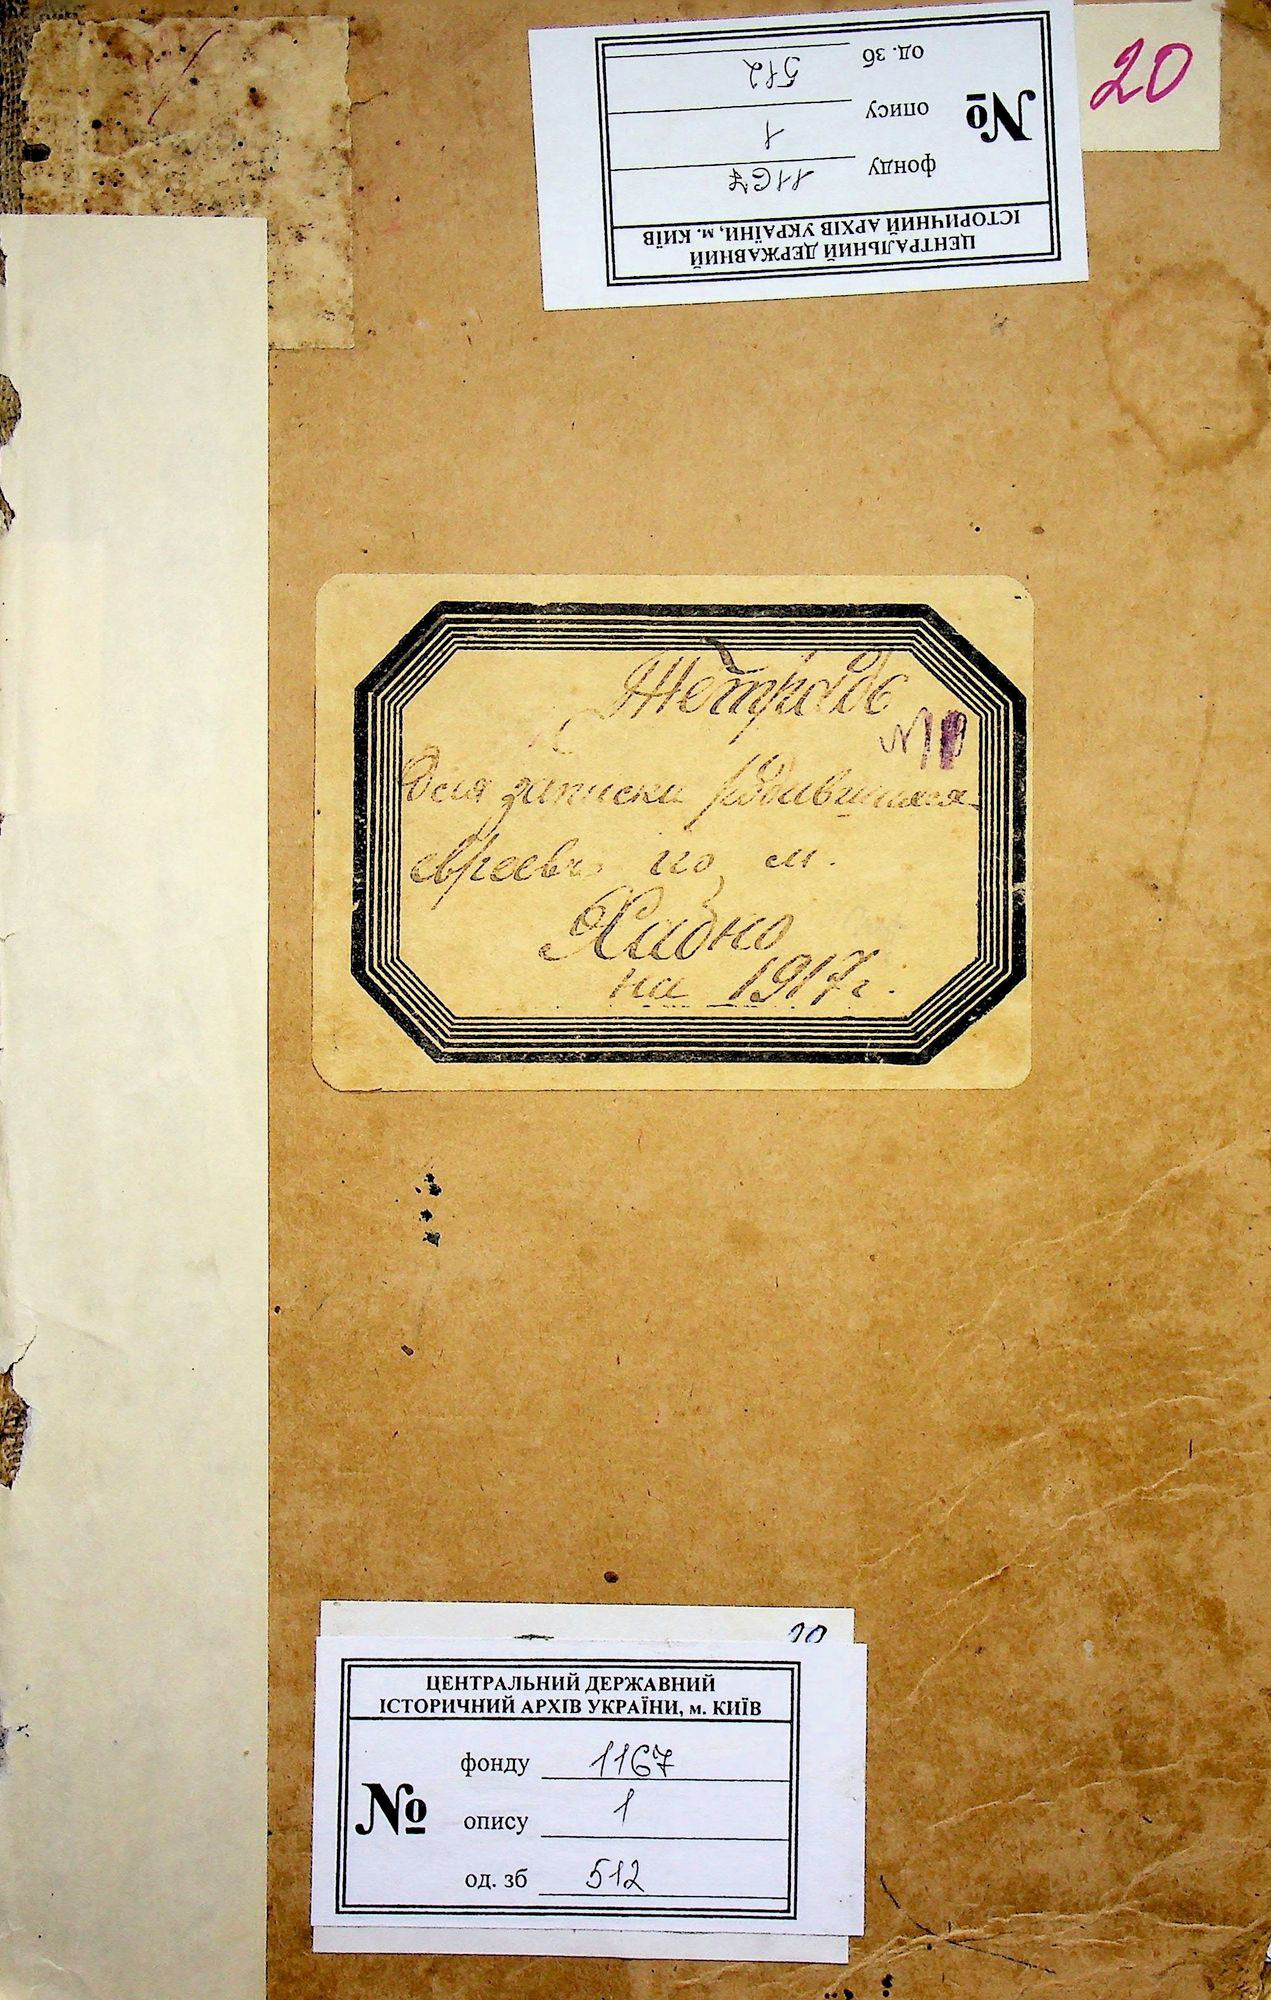 20
ЦЕНТРАЛЬНИЙ ДЕРЖАВНИЙ
ІСТОРИЧНИЙ АРХІВ УКРАЇНИ, м. КИЇВ
фонду 1167
№ опису 1
од. зб 512
Тетрадь
№
для записки родившихся
евреевъ по м.
Хабно
на 1917 г.
20
ЦЕНТРАЛЬНИЙ ДЕРЖАВНИЙ
ІСТОРИЧНИЙ АРХІВ УКРАЇНИ, м. КИЇВ
фонду 1167
№ опису 1
од. зб 512